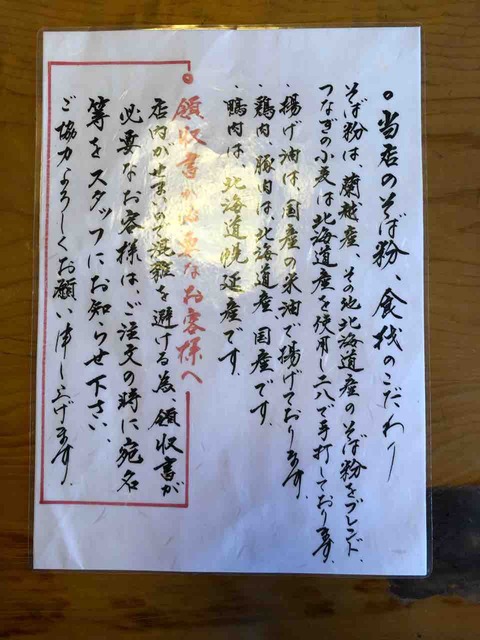 ○当店のそば粉、食材のこだわり
そば粉は、蘭越産、その他北海道産のそば粉をブレンド、
つなぎの小麦は北海道産を使用し二八で手打しております。
・揚げ油は、国産の米油で揚げております。
・鶏肉、豚肉は、北海道産、国産です。
・鴨肉は、北海道幌延産です。
○領収書が必要なお客様へ
店内がせまいので混雑を避ける為、領収書が
必要なお客様は、ご注文の時に宛名
等をスタッフにお知らせ下さい、
ご協力よろしくお願い申し上げます。